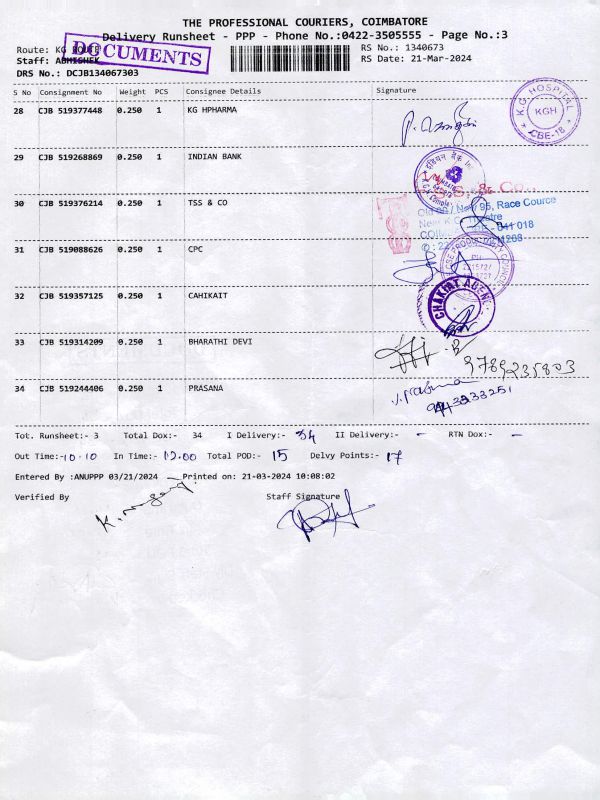 THE PROFESSIONAL COURIERS, COIMBATORE
Delivery Runsheet - PPP - Phone No.:0422-3505555 - Page No.:3
Route: KG ROUTE
RS No.: 1340673
DOCUMENTS
Staff: ABHISHEK
RS Date: 21-Mar-2024
DRS No.: DCJB134067303
S No Consignment No Weight PCS Consignee Details Signature
28 CJB 519377448 0.250 1 KG HPHARMA
K.G. HOSPITAL
KGH
CBE-18
29 CJB 519268869 0.250 1 INDIAN BANK
30 CJB 519376214 0.250 1 TSS & CO
Race Cource
641 018
31 CJB 519088626 0.250 1 CPC
32 CJB 519357125 0.250 1 CAHIKAIT
33 CJB 519314209 0.250 1 BHARATHI DEVI
9789235803
34 CJB 519244406 0.250 1 PRASANA
Tot. Runsheet:- 3 Total Dox:- 34 I Delivery:- 34 II Delivery:- - RTN Dox:- -
Out Time:- 10.10 In Time:- 12.00 Total POD:- 15 Delvy Points:- 17
Entered By :ANUPPP 03/21/2024 Printed on: 21-03-2024 10:08:02
Verified By Staff Signature